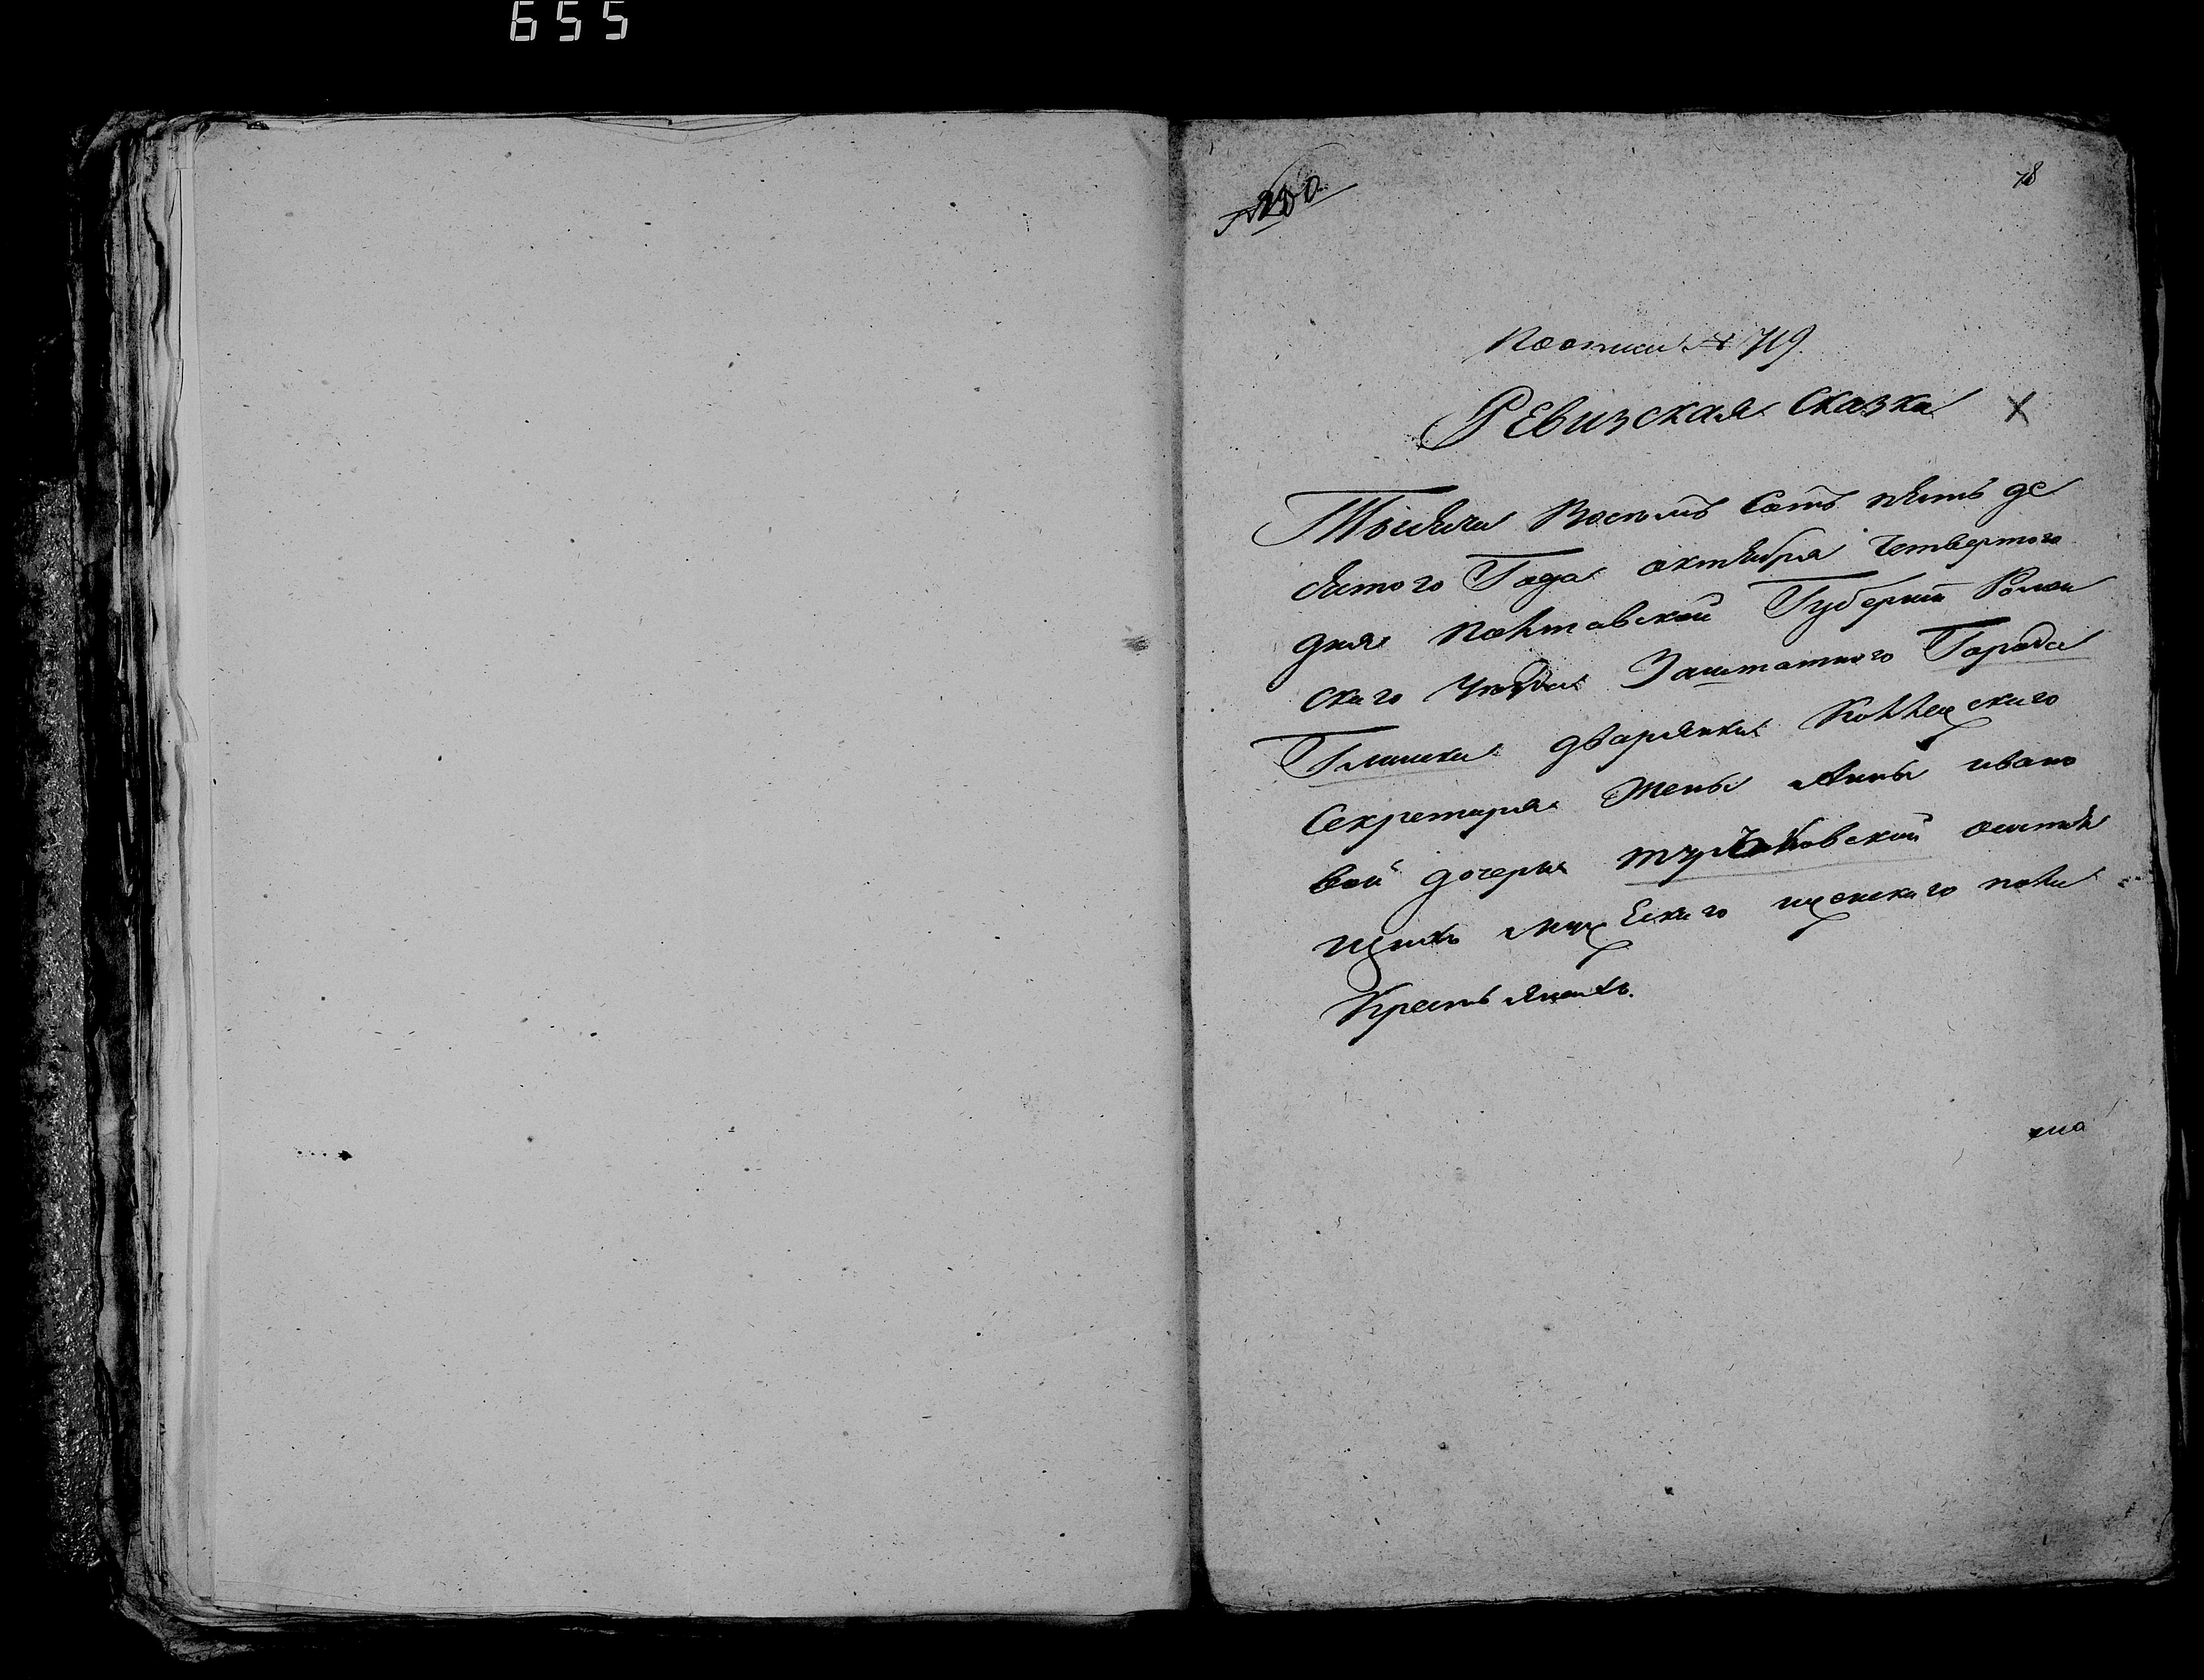 655
78
По описи № 719.
Ревизская сказка
Тысяча Восемъ Сотъ пять де
сятого Года октября Четвертого
дня полтавской Губернии Ромен
скаго уезда Заштатного Города
Глинска дварянки Коллежскаго
Секретаря Жены Анны ивано
вой дочери осостоя
щихъ мужескаго женскаго пола
Крестьянахъ.